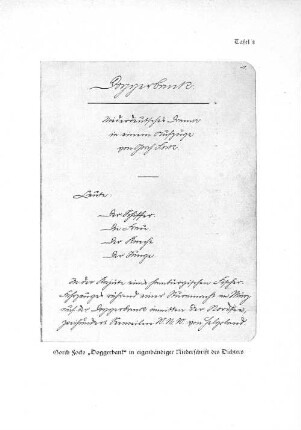 Tafel 3
Doggerbank.
Niederdeutsches Drama
in einem Aufzuge
von Gorch Fock
Leute:
Der Schiffer.
Der
Der Knecht
Der Junge
In der Kajüte eines hamburgischen Fischer-
fahrzeuges während einer Sturmnacht im März
auf der Doggerbank inmitten der Nordsee,
Seemeilen N.N.W. von Helgoland
Gorch Focks „Doggerbank“ in eigenhändiger Niederschrift des Dichters